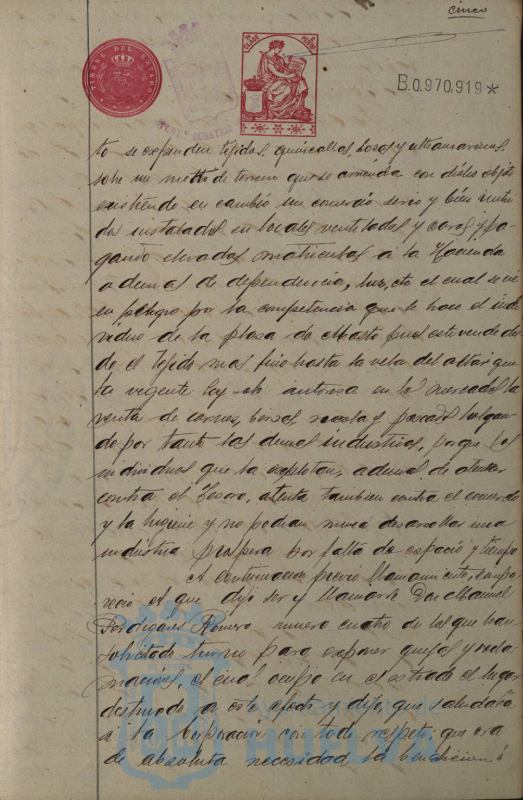 cinco
TIMBRE DEL ESTADO
B.0.970.919*
to se expenden tejidos, quincallas, losas y ultramarinos
sobre un metro de terreno que se arrienda con dicho objeto
existiendo en cambio un comercio serio y bien
instalados en locales ventilados y caros y pa-
gando elevadas matriculas a la Hacienda
ademas de dependencia, luz, etc el cual se ve
en peligro por la competencia que le hace el indi-
viduo de la plaza de Abasto pues este vende des
de el tejido mas fino hasta la vela del altar que
la vigente ley autoriza en los mercados la
venta de carnes, y pescados
do por tanto las demas industrias, porque los
individuos que la explotan, ademas de atentar
contra el Tesoro, atenta tambien contra el comercio
y la higiene y no podran nunca desarrollar una
industria prospera por falta de espacio y tiempo
A continuacion previo llamamiento, compa-
recio el que dijo ser y llamarse Don Manuel
Perdigones Romero numero cuatro de los que han
solicitado turno para exponer quejas y recla-
maciones, el cual ocupo en el estrado el lugar
destinado a este efecto y dijo, que saludaba
a la Corporacion con todo respeto; que era
de absoluta necesidad la
HUELVA